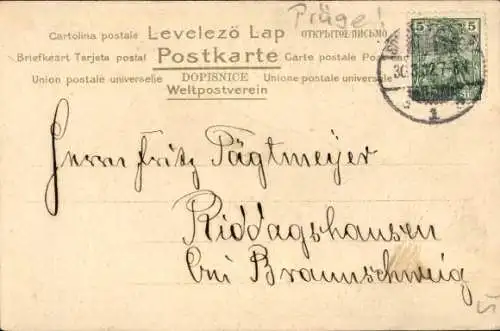 Präge!
Cartolina postale Levelező Lap ОТКРЫТОЕ ПИСЬМО
Briefkaart Tarjeta postal Postkarte Carte postale
Union postale universelle DOPISNICE Unione postale universale
Weltpostverein
5 5
30.
Herrn Fritz Tägtmeyer
Riddagshausen
bei Braunschweig